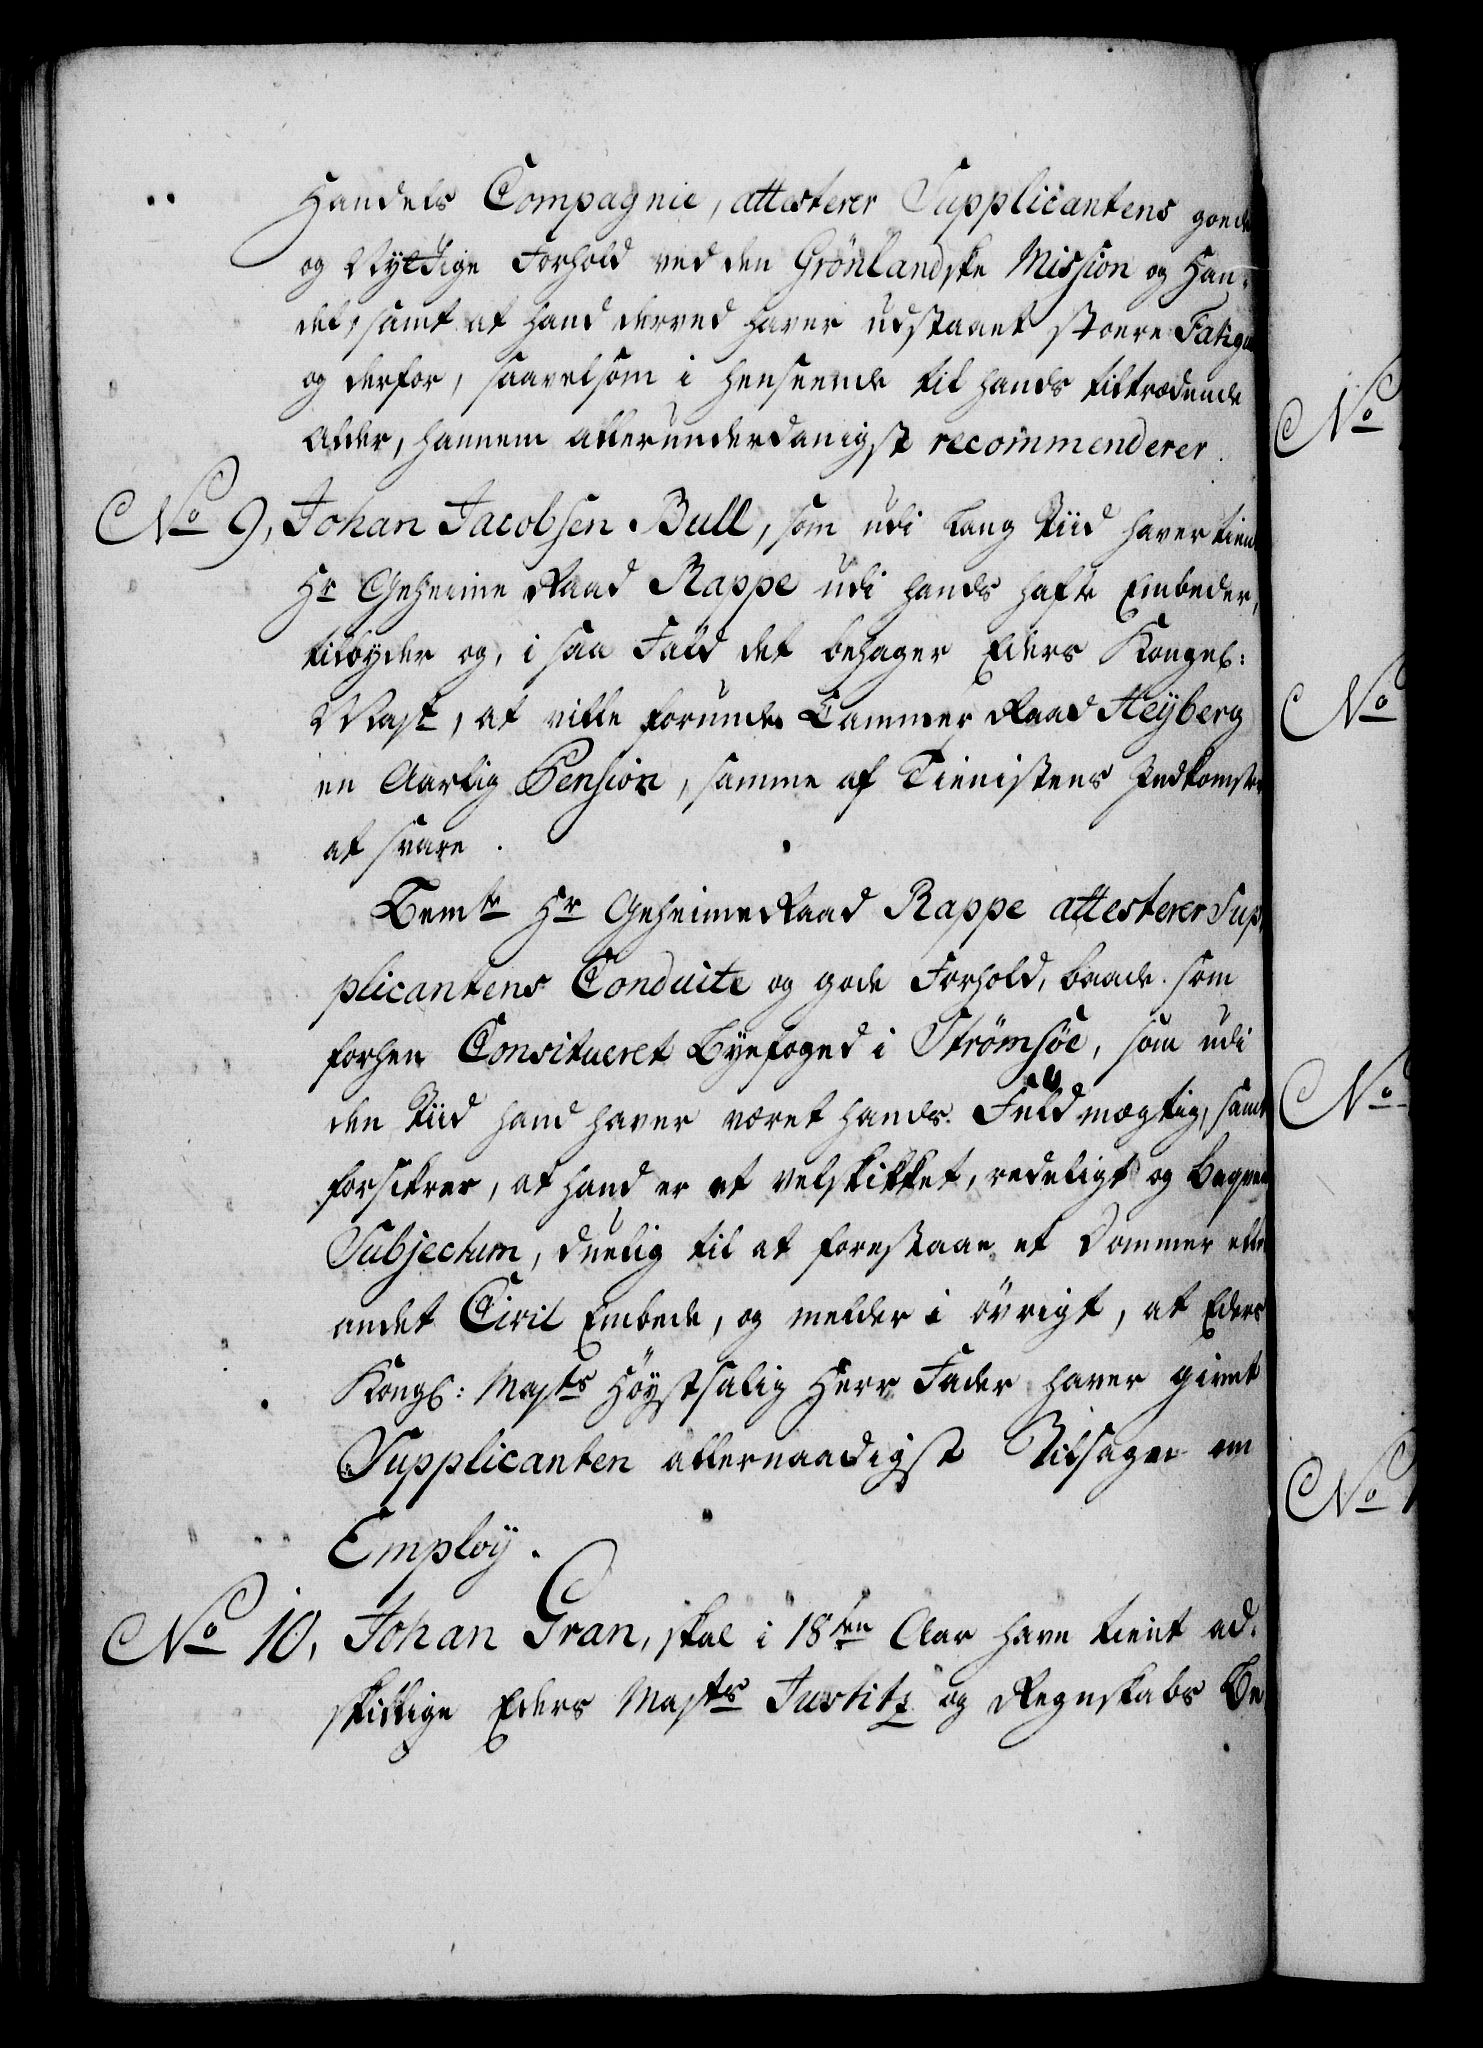 Handels Compagnie, attesterer Supplicantens goede
og Nyttige Forhold ved den Grönlandske Mission og Han-
del, samt at hand derved haver udstaaet stoere Fatigue
og derfor, saavelsom i henseende til hands tiltrædende
Alder, hannem allerunderdanigst recommenderer.
No 9, Johan Jacobsen Bull, som udi lang Tiid haver tient
Hr Geheime Raad Rappe udi hands hafte Embeder,
tilbyder og, i saa Fald det behager Eders Kongel:
Mayt, at ville forunde Cammer Raad Heÿberg
en Aarlig Pension, samme af Tienistens Indkomster
at svare.
Bemte Hr Geheime Raad Rappe attesterer Sup-
plicantens Conduite og gode Forhold, baade som
forhen Consitueret Byefoged i Strømsöe, som udi
den Tiid hand haver været hands Fuldmægtig, samt
forsikrer, at hand er et velskikket, redeligt og beqvem
Subjectum, duelig til at forestaae et Dommer eller
andet Civil Embede, og melder i övrigt, at Eders
Kongl: Mayts Höystsalig Herr Fader haver givet
Supplicanten allernaadigst Tilsagn om
Employ.
No 10, Johan Gran, skal i 18ten Aar have tient ad-
skillige Eders Mayts Justitz og Regnskabs Be-
No
No
No
No 1